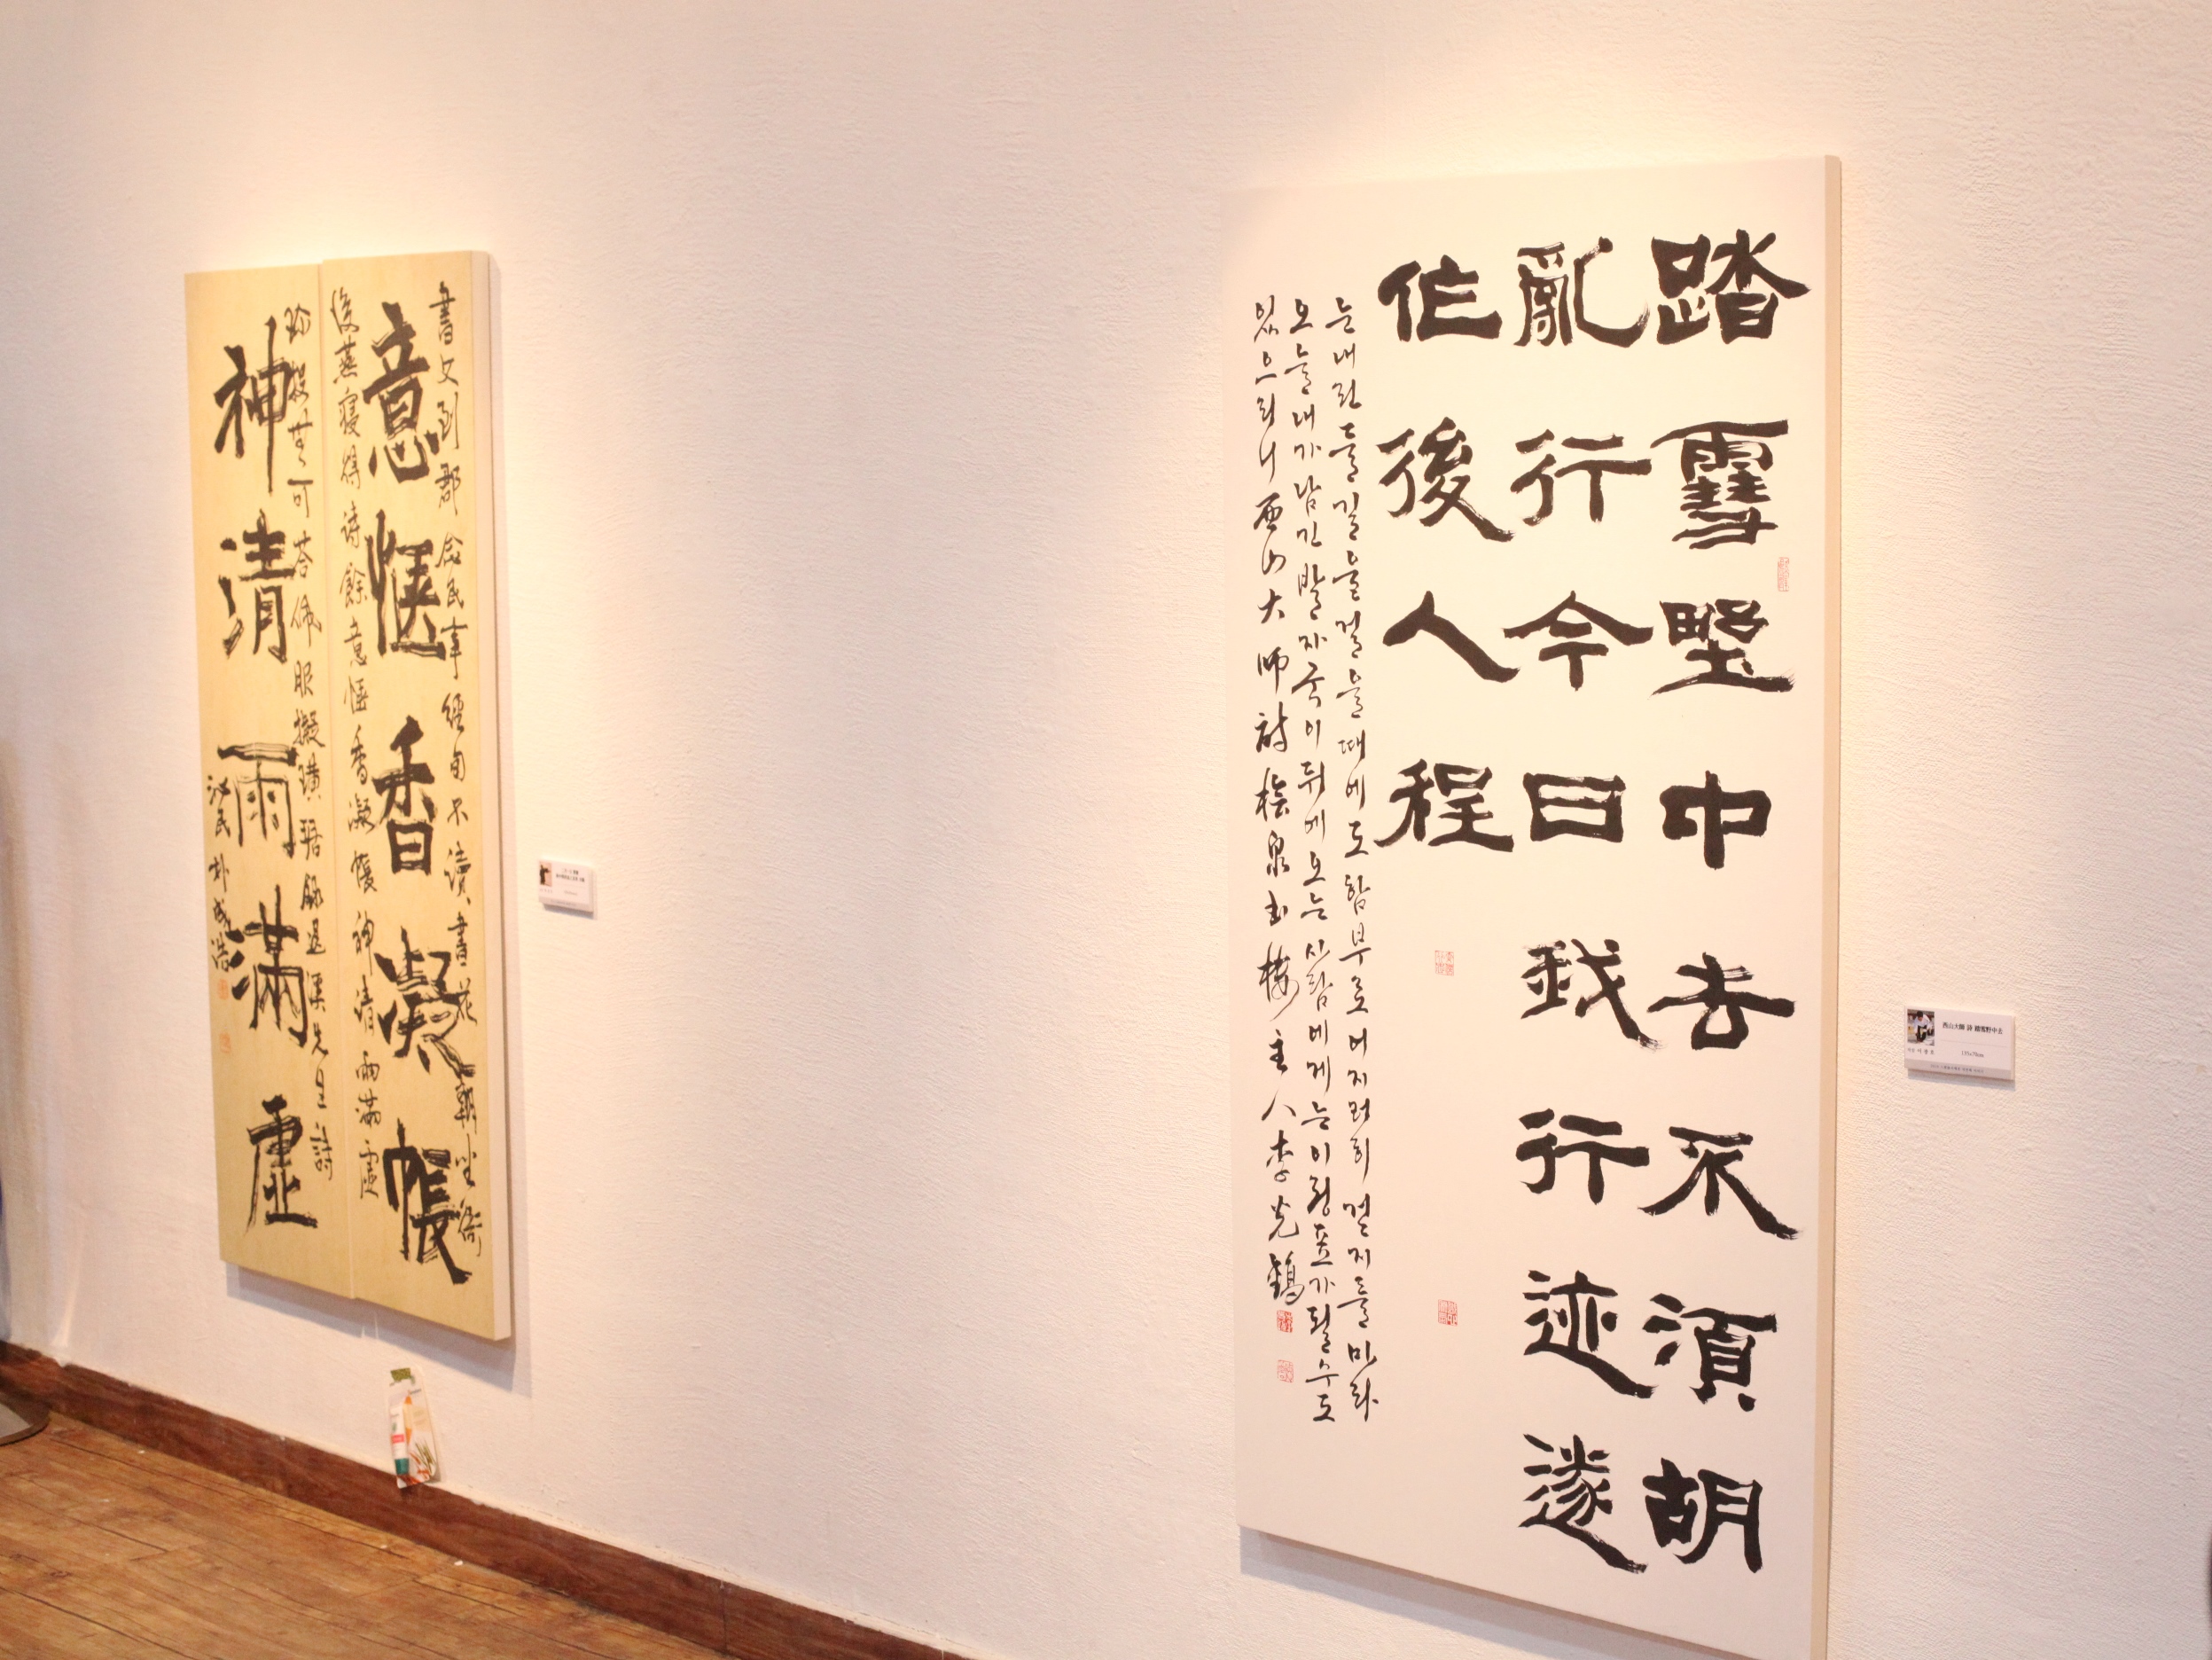 踏雪野中去不須胡
亂行今日我行迹遂
作後人程
눈내린들길을걸을때에도함부로어지러히걷지를마라
오늘내가남긴발자국이뒤에오는사람에게는이정표가될수도
있으리니西山大師詩檜泉書樓主人李光鎬
西山大師 詩 踏雪野中去
이광호
135x70cm
到郡念民事經旬不讀書花朝坐衙
意愜香凝帳
後燕寢得詩餘意愜香凝帳神清雨滿虛
珍投無可答佩服擬璜琚錄退溪先生詩
神清雨滿虛
朴成浩